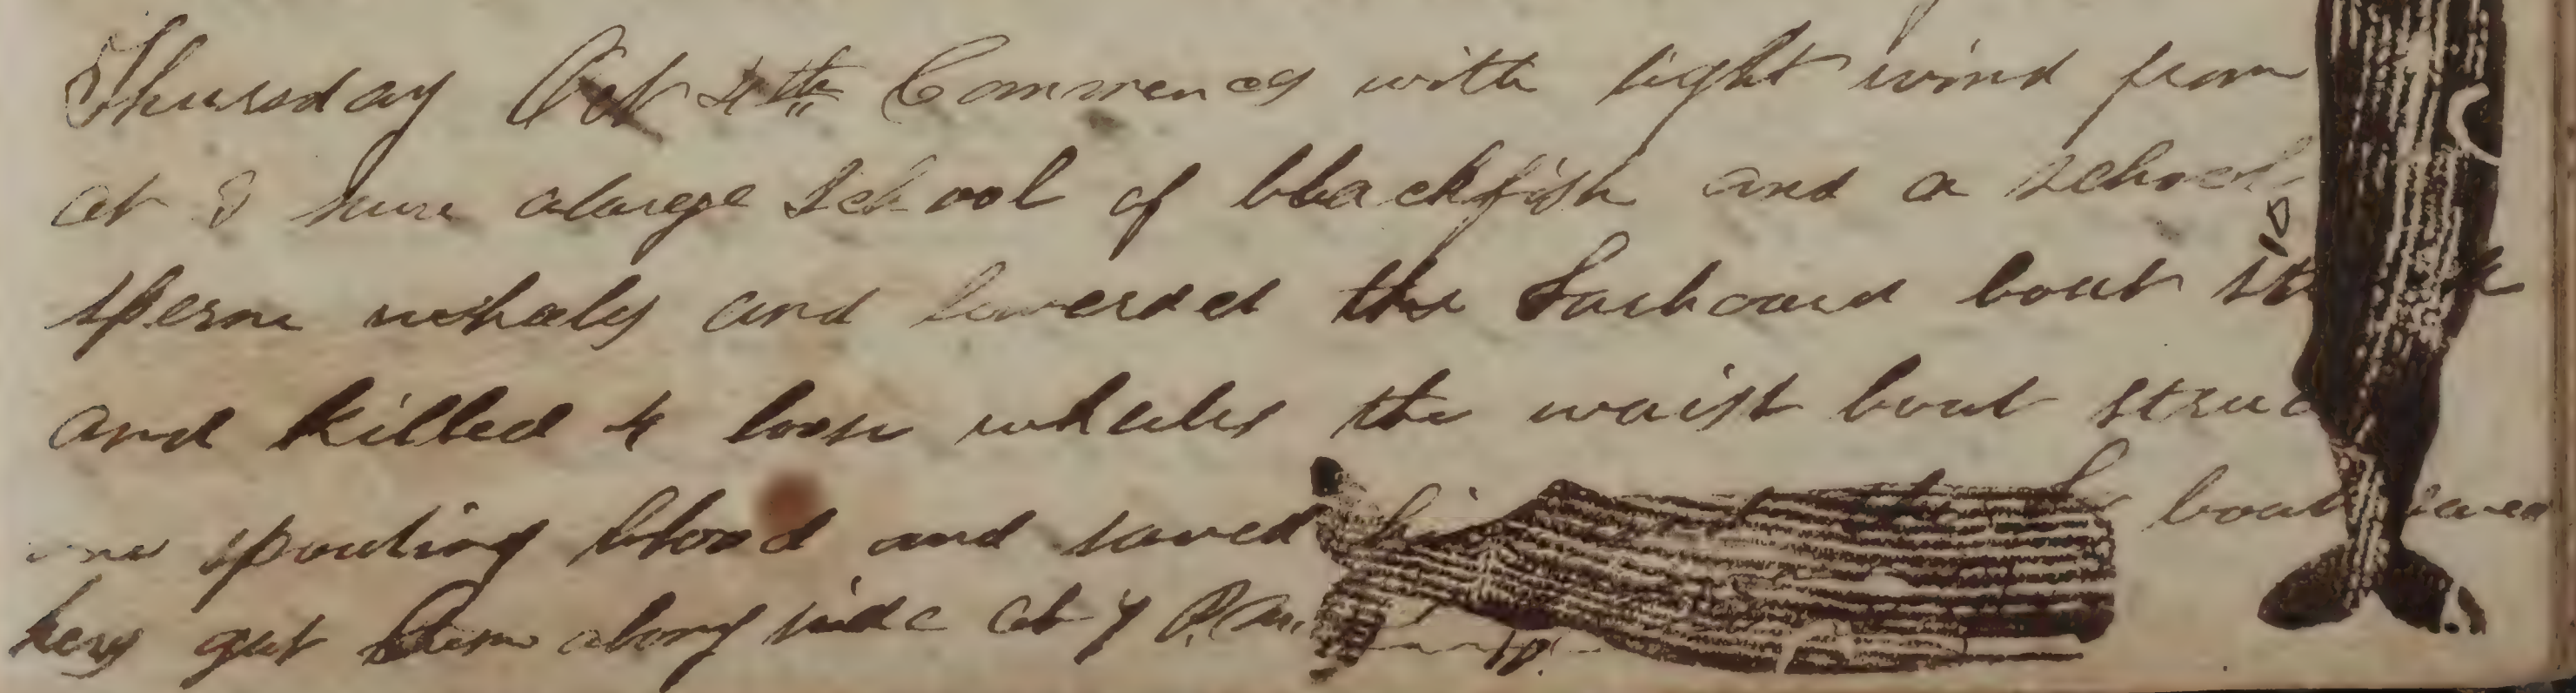 Thursday Oct 4th Commences with light wind from
at 8 sure alarge School of blackfish and a school
sperm whales and lowerded the Larboard boat
and killed 4 loose whales the waist boat struc
one spouting blood and saved boat saved
hers got them along side at 7 P.M.